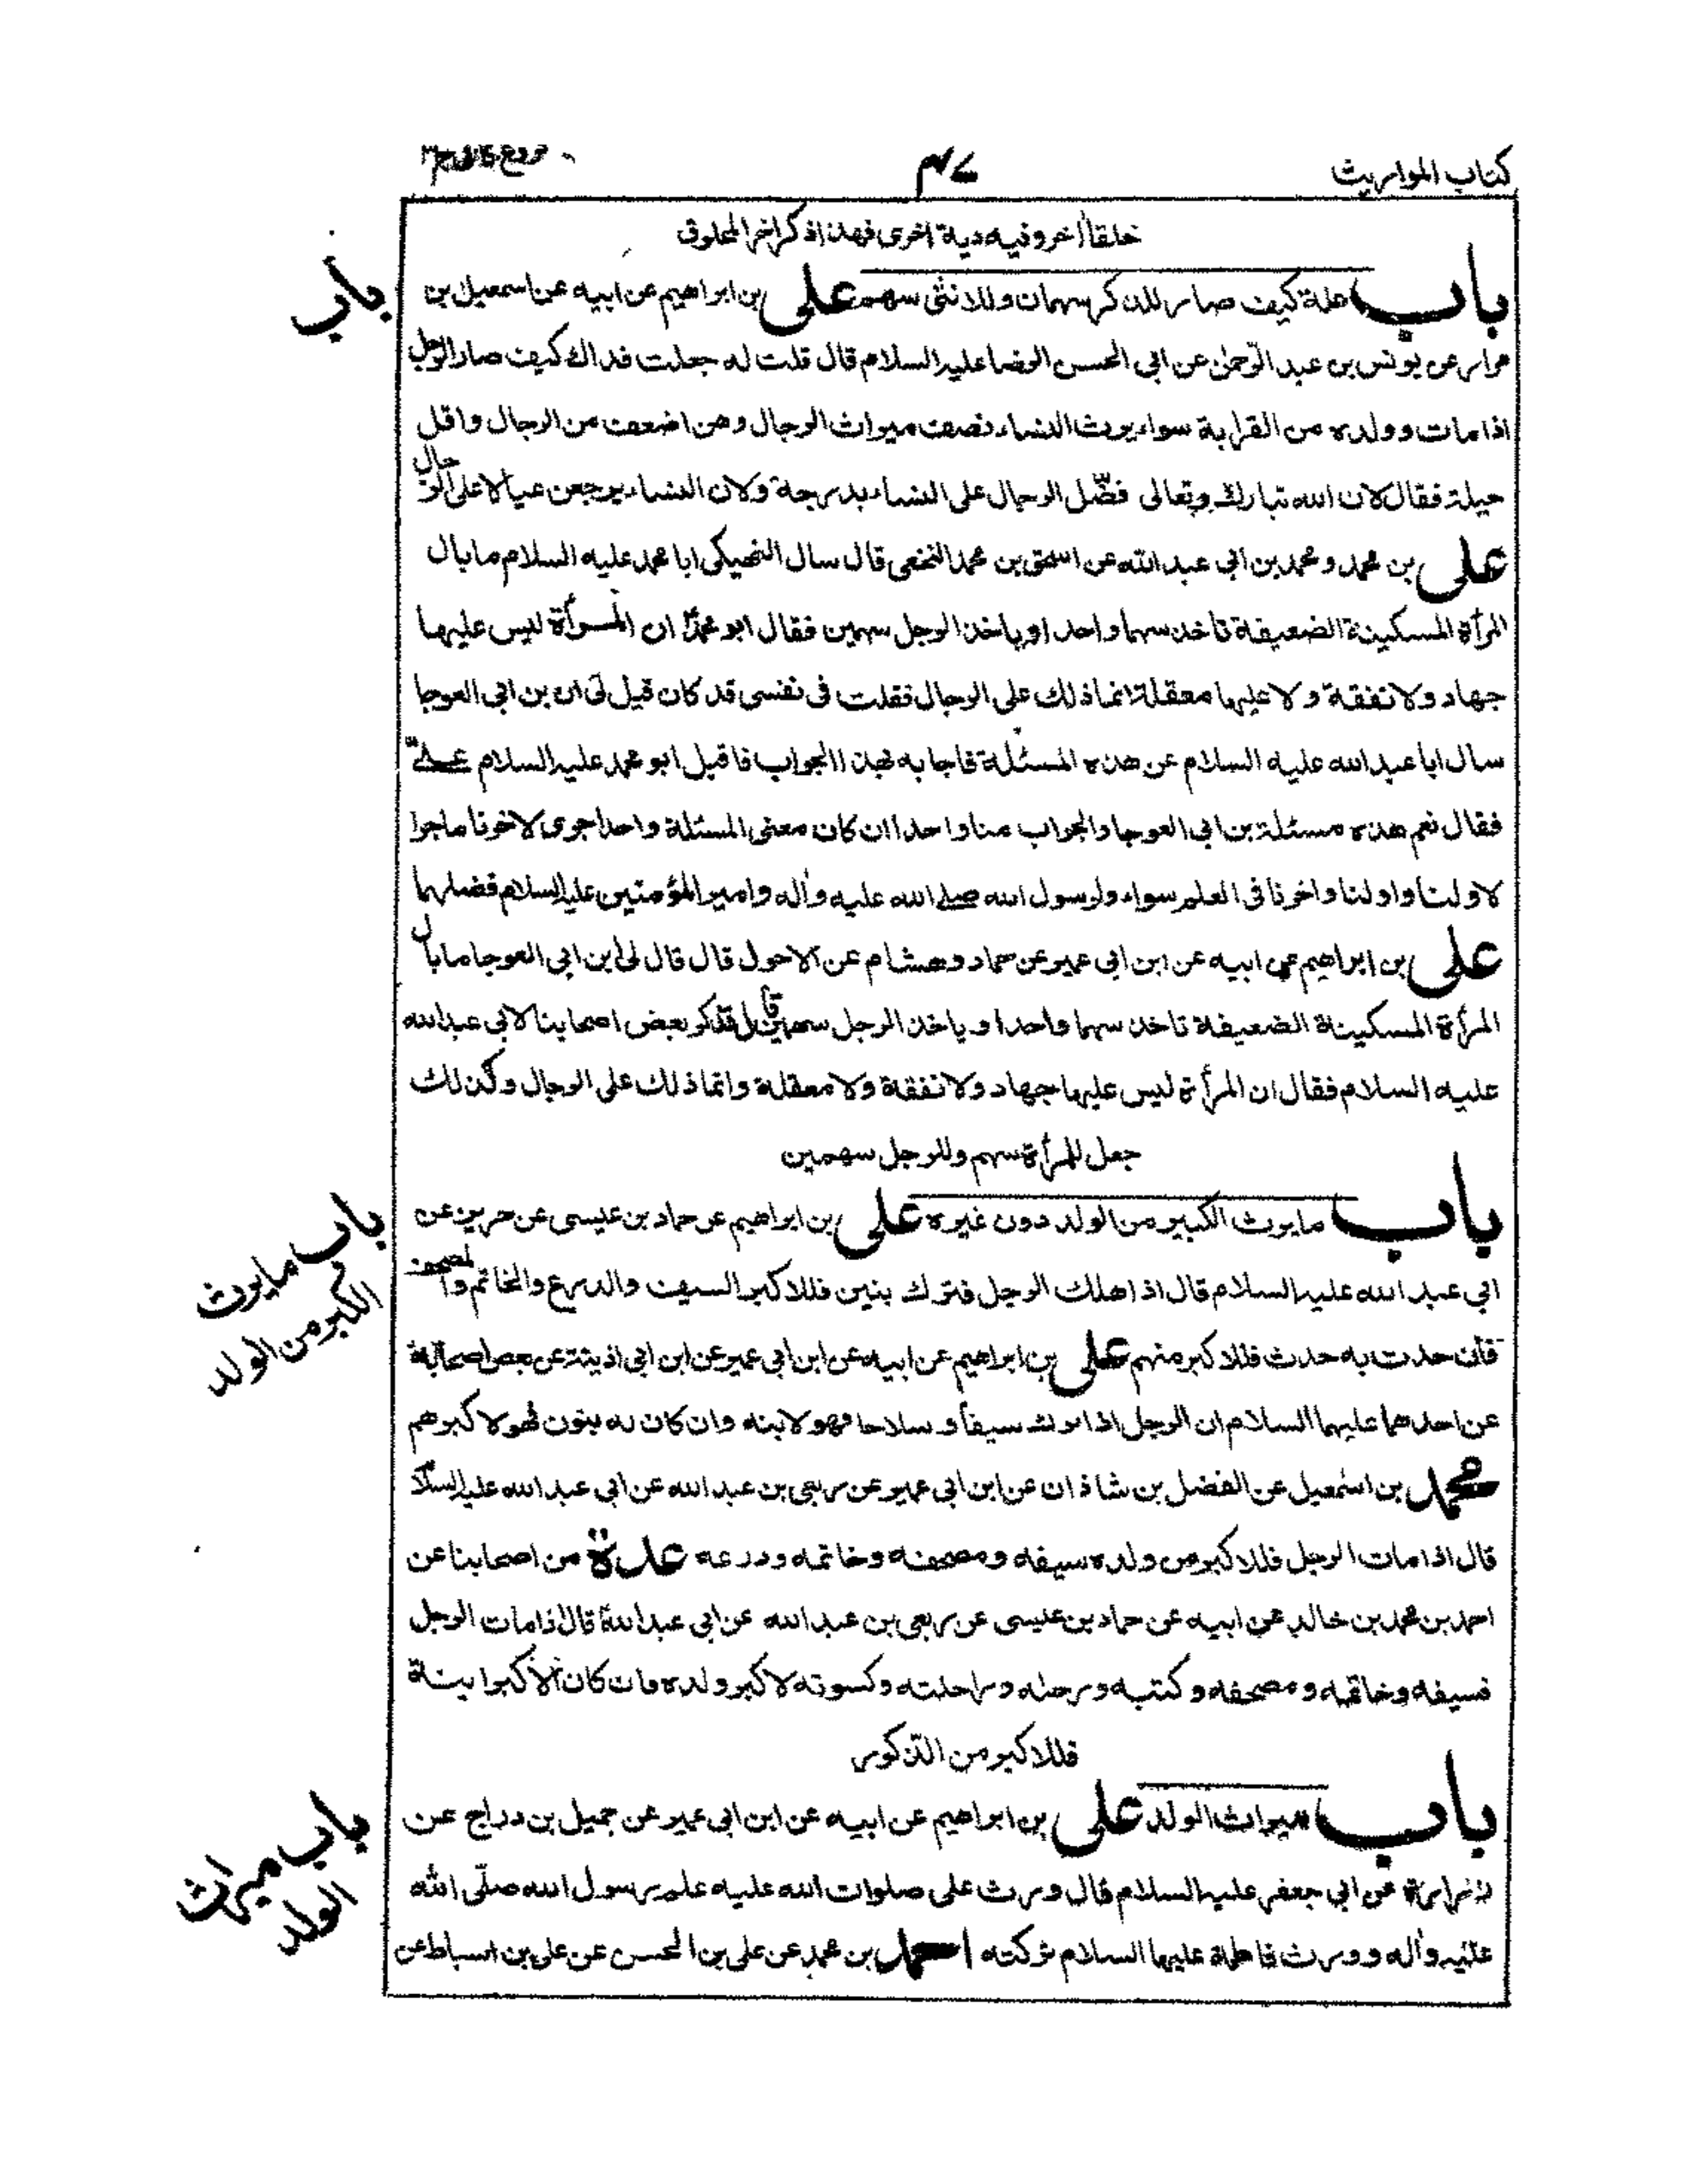 كتاب المواريث
٤٧
فروع كافى ج٣
خلقا اخر وفيه دية اخرى فهذا ذكر اخر المخلوق
باب علة كيف صار للذكر سهمان وللانثى سهم على بن ابراهيم عن ابيه عن اسمعيل بن
باب
مرار عن يونس بن عبد الرّحمن عن ابى الحسن الرضا عليه السلام قال قلت له جعلت فداك كيف صار الرجل
اذا مات وولده من القرابة سواء يرث النساء نصف ميراث الرجال وهن اضعف من الرجال واقل
حيلة فقال لان الله تبارك وتعالى فضّل الرجال على النساء بدرجة ولان النساء يرجعن عيالا على الرجال
على بن محمد و محمد بن ابى عبد الله عن اسحق بن محمد النخعى قال سال النهيكى ابا محمد عليه السلام ما بال
المرأة المسكينة الضعيفة تاخذ سهما واحدا وياخذ الرجل سهمين فقال ابو محمدؑ ان المرأة ليس عليها
جهاد ولا نفقة ولا عليها معقلة انما ذلك على الرجال فقلت فى نفسى قد كان قيل لى ان بن ابى العوجا
سال ابا عبد الله عليه السلام عن هذه المسئلة فاجابه بهذا الجواب فاقبل ابو محمد عليه السلام علىّ
فقال نعم هذه مسئلة بن ابى العوجا والجواب منا واحد اذا كان معنى المسئلة واحدا جرى لاخرنا ما جرا
لاولنا واولنا واخرنا فى العلم سواء ولرسول الله صلى الله عليه وآله وامير المؤمنين عليه السلام فضلهما
على بن ابراهيم عن ابيه عن ابن ابى عمير عن حماد وهشام عن الاحول قال قال لى ابن ابى العوجا ما بال
المرأة المسكينة الضعيفة تاخذ سهما واحدا و ياخذ الرجل سهمين قال فذكر بعض اصحابنا لابى عبد الله
عليه السلام فقال ان المرأة ليس عليها جهاد ولا نفقة ولا معقلة وانما ذلك على الرجال وكذلك
جعل للمرأة سهم وللرجل سهمين
باب ما يرث الكبير من الولد دون غيره على بن ابراهيم عن حماد بن عيسى عن حريز عن
باب ما يرث
الكبير من الولد
ابى عبد الله عليه السلام قال اذا هلك الرجل فترك بنين فللاكبر السيف والدرع والخاتم والمصحف
فان حدث به حدث فللاكبر منهم على بن ابراهيم عن ابيه عن ابن ابى عمير عن ابن ابى اذينة عن بعض اصحابه
عن احدهما عليهما السلام ان الرجل اذا ترك سيفا و سلاحا فهو لابنه وان كان له بنون فهو لاكبرهم
محمد بن اسمعيل عن الفضل بن شاذان عن ابن ابى عمير عن ربعى بن عبد الله عن ابى عبد الله عليه السلام
قال اذا مات الرجل فللاكبر من ولده سيفه ومصحفه وخاتمه ودرعه عدة من اصحابنا عن
احمد بن محمد بن خالد عن ابيه عن حماد بن عيسى عن ربعى بن عبد الله عن ابى عبد اللهؑ قال اذا مات الرجل
فسيفه وخاتمه ومصحفه وكتبه ورحله وراحلته وكسوته لاكبر ولده فان كان الاكبر ابنة
فللاكبر من الذكور
باب ميراث الولد على بن ابراهيم عن ابيه عن ابن ابى عمير عن جميل بن دراج عن
باب ميراث
الولد
زرارة عن ابى جعفر عليه السلام قال ورث على صلوات الله عليه علم رسول الله صلّى الله
عليه وآله وورث فاطمة عليها السلام تركته احمد بن محمد عن على بن الحسن عن على بن اسباط عن